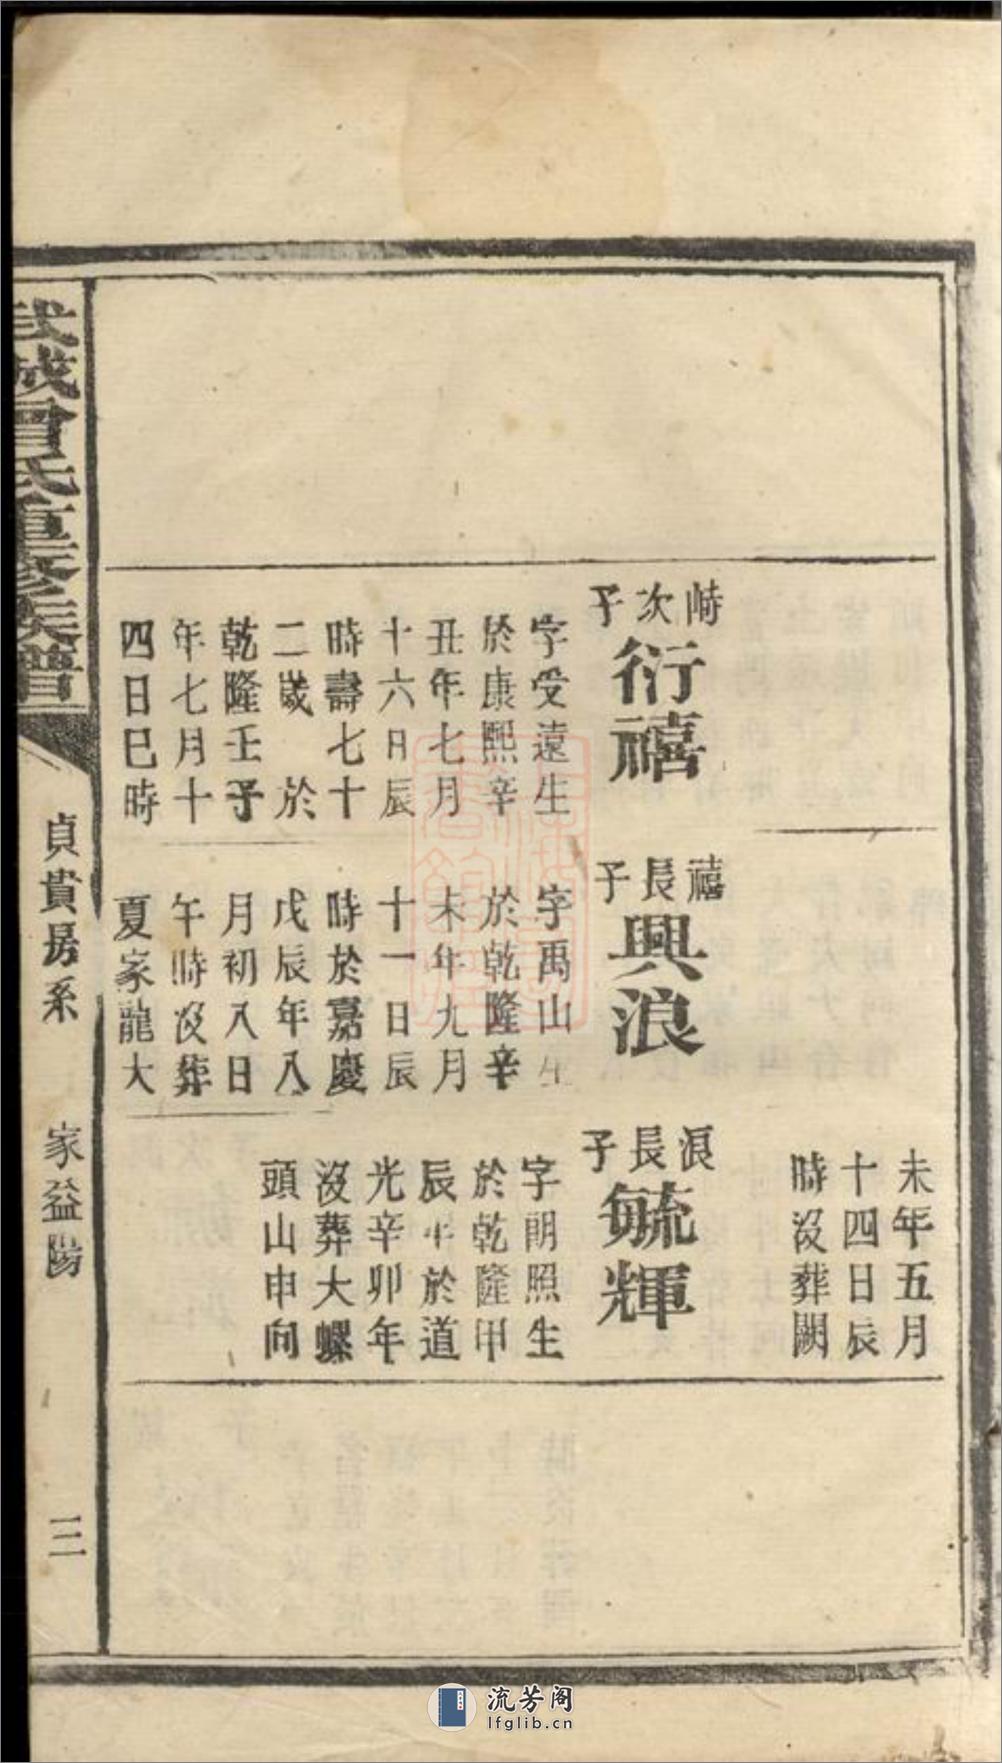 崎次子
衍禧
字受遠生
於康熙辛
丑年七月
十六日辰
時壽七十
二歲 於
乾隆壬子
年七月十
四日巳時
禧長子
興浪
字禹山生
於乾隆辛
未年九月
十一日辰
時於嘉慶
戊辰年八
月初八日
午時沒葬
夏家龍大
未年五月
十四日辰
時沒葬闕
浪長子
毓輝
字朗照生
於乾隆甲
辰年於道
光辛卯年
沒葬大螺
頭山申向
武城曾氏重修族譜
貞貴房系 家益陽
三
流芳阁
lfglib.cn